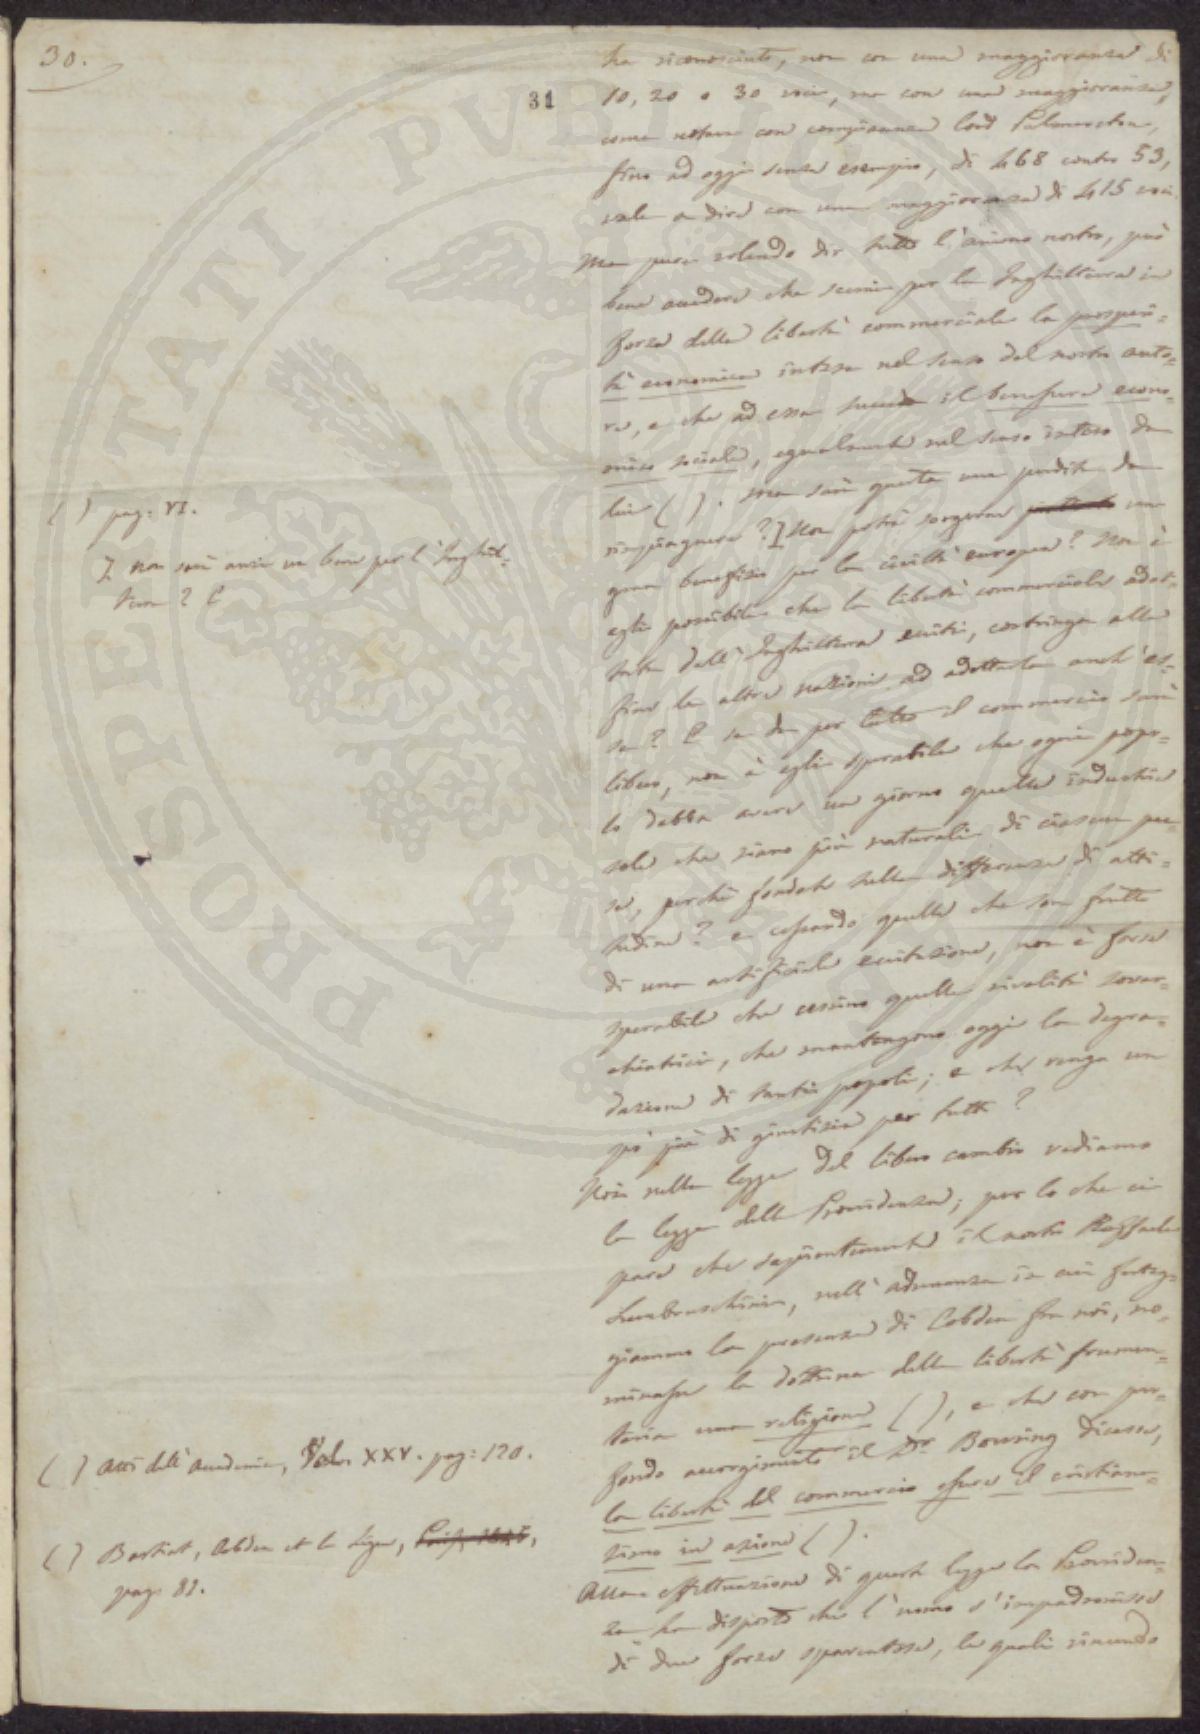 30.
31
ha riconosciuto, non con una maggioranza di
10, 20 o 30 voci, ma con una maggioranza,
come notava con compiacenza lord Palmerston,
fino ad oggi senza esempio, di 468 contro 53,
vale a dire con una maggioranza di 415 voci.
Ma pure volendo dir tutto l'animo nostro, può
bene accadere che scemi per la Inghilterra in
forza della libertà commerciale la prosperi-
tà economica intesa nel senso del nostro auto-
re, e che ad essa succeda il benessere econo-
mico sociale, egualmente nel senso inteso da
lui ( ). Ma sarà questa una perdita da
rimpiangere? I Non potrà sorgerne un
gran benefizio per la civiltà europea? Non è
egli possibile che la libertà commerciale adot-
tata dall'Inghilterra ecciti, costringa alla
fine le altre nazioni ad adottarla anch'es-
se? E se da per tutto il commercio sarà
libero, non è egli sperabile che ogni popo-
lo debba avere un giorno quelle industrie
sole che siano più naturali di ciascun pae-
se, perchè fondate sulla differenza di atti-
tudine? e cessando quelle che son frutto
di una artificiale eccitazione, non è forse
sperabile che cessino quelle rivalità sover-
chiatrici, che mantengono oggi la degra-
dazione di tanti popoli; e che venga un
pò più di giustizia per tutti?
Noi nella legge del libero cambio vediamo
la legge della Provvidenza; per lo che ci
pare che sapientemente il nostro Raffaele
Lambruschini, nell'adunanza in cui festeg-
giammo la presenza di Cobden fra noi, no-
minasse la dottrina della libertà frumen-
taria una religione ( ), e che con pro-
fondo accorgimento il Dr Bowring dicesse,
la libertà del commercio essere il cristiane-
simo in azione ( ).
Alla effettuazione di questa legge la Provviden-
za ha disposto che l'uomo s'impadronisse
di due forze sparentose, le quali riunendo
( ) pag: VI.
I Non sarà anzi un bene per l'Inghil-
terra? E
( ) Atti dell'Accademia, Vol. XXV. pag: 120.
( ) Bastiat, Cobden et la Ligue, Paris, 1845,
pag. 81.